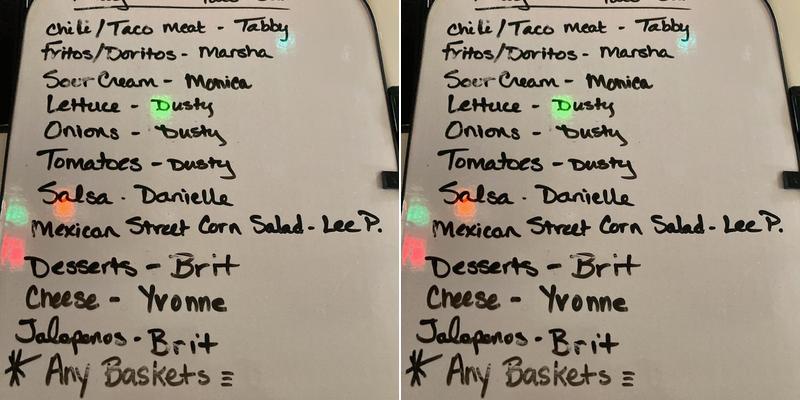 Chili/Taco meat - Tabby
Fritos/Doritos - Marsha
Sour Cream - Monica
Lettuce - Dusty
Onions - Dusty
Tomatoes - Dusty
Salsa - Danielle
Mexican Street Corn Salad - Lee P.
Desserts - Brit
Cheese - Yvonne
Jalaponos - Brit
* Any Baskets =
Chili/Taco meat - Tabby
Fritos/Doritos - Marsha
Sour Cream - Monica
Lettuce - Dusty
Onions - Dusty
Tomatoes - Dusty
Salsa - Danielle
Mexican Street Corn Salad - Lee P.
Desserts - Brit
Cheese - Yvonne
Jalaponos - Brit
* Any Baskets =